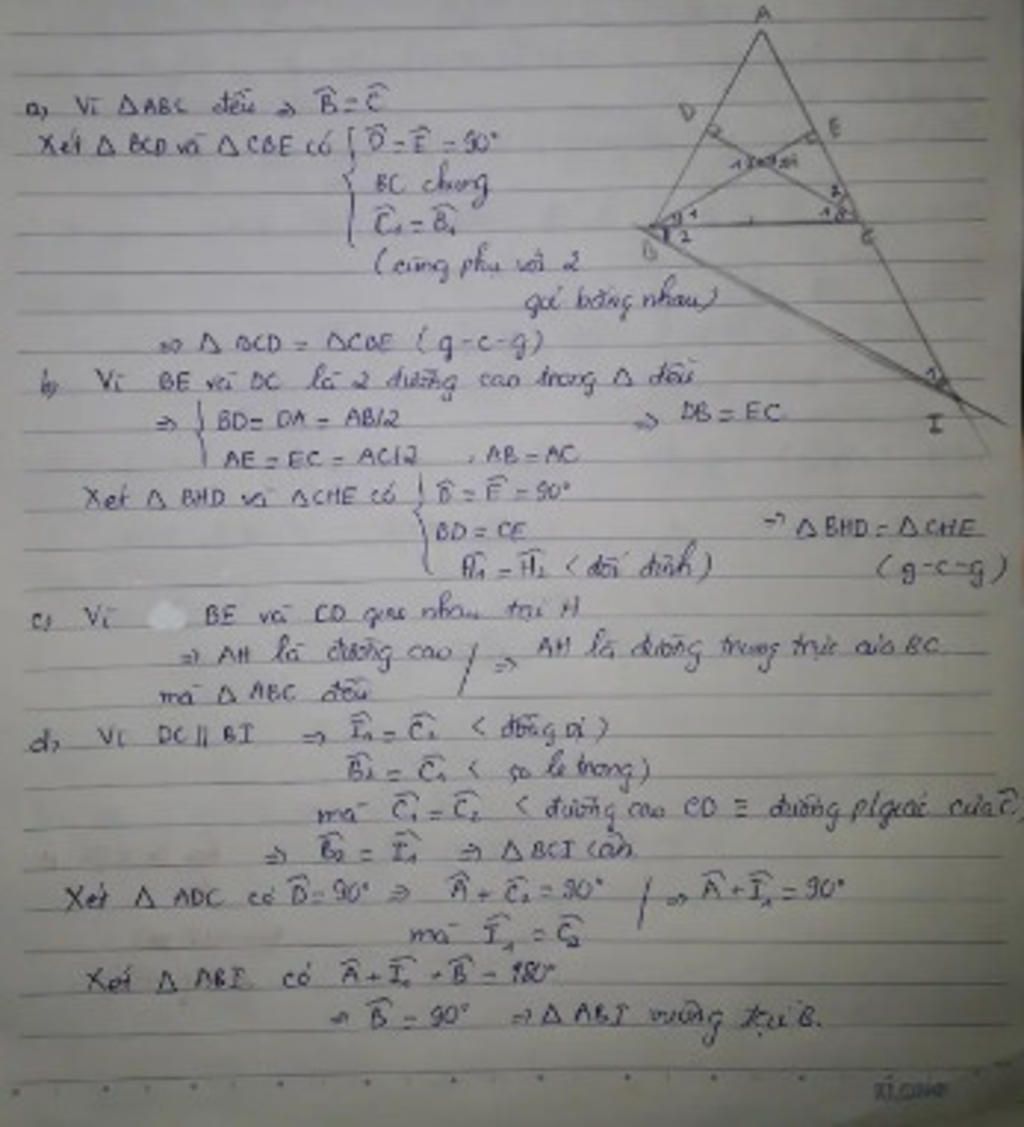 A
D
E
B
C
I
a, Vì △ABC đều ⇒ B̂ = Ĉ
Xét △ BCD và △ CBE có { D̂ = Ê = 90°
BC chung
Ĉ₁ = B̂₁
(cùng phụ với 2
góc bằng nhau)
⇒ △ BCD = △CBE (g-c-g)
b, Vì BE và DC là 2 đường cao trong △ đều
⇒ { BD = DA = AB/2 ⇒ DB = EC
AE = EC = AC/2 , AB = AC
Xét △ BHD và △CHE có { D̂ = Ê = 90°
BD = CE ⇒ △ BHD = △ CHE
Ĥ₁ = Ĥ₂ (đối đỉnh) (g-c-g)
c, Vì BE và CD giao nhau tại H
⇒ AH là đường cao / ⇒ AH là đường trung trực của BC
mà △ ABC đều
d, Vì DC || BI ⇒ Î₁ = Ĉ₂ (đồng vị)
B̂₂ = Ĉ₁ (so le trong)
mà Ĉ₁ = Ĉ₂ (đường cao CD ≡ đường p/giác của Ĉ)
⇒ B̂₂ = Î₁ ⇒ △ BCI cân
Xét △ ADC có D̂ = 90° ⇒ Â + Ĉ₂ = 90° / ⇒ Â + Î₁ = 90°
mà Î₁ = Ĉ₂
Xét △ ABI có Â + Î₁ + B̂ = 180°
⇒ B̂ = 90° ⇒ △ ABI vuông tại B.